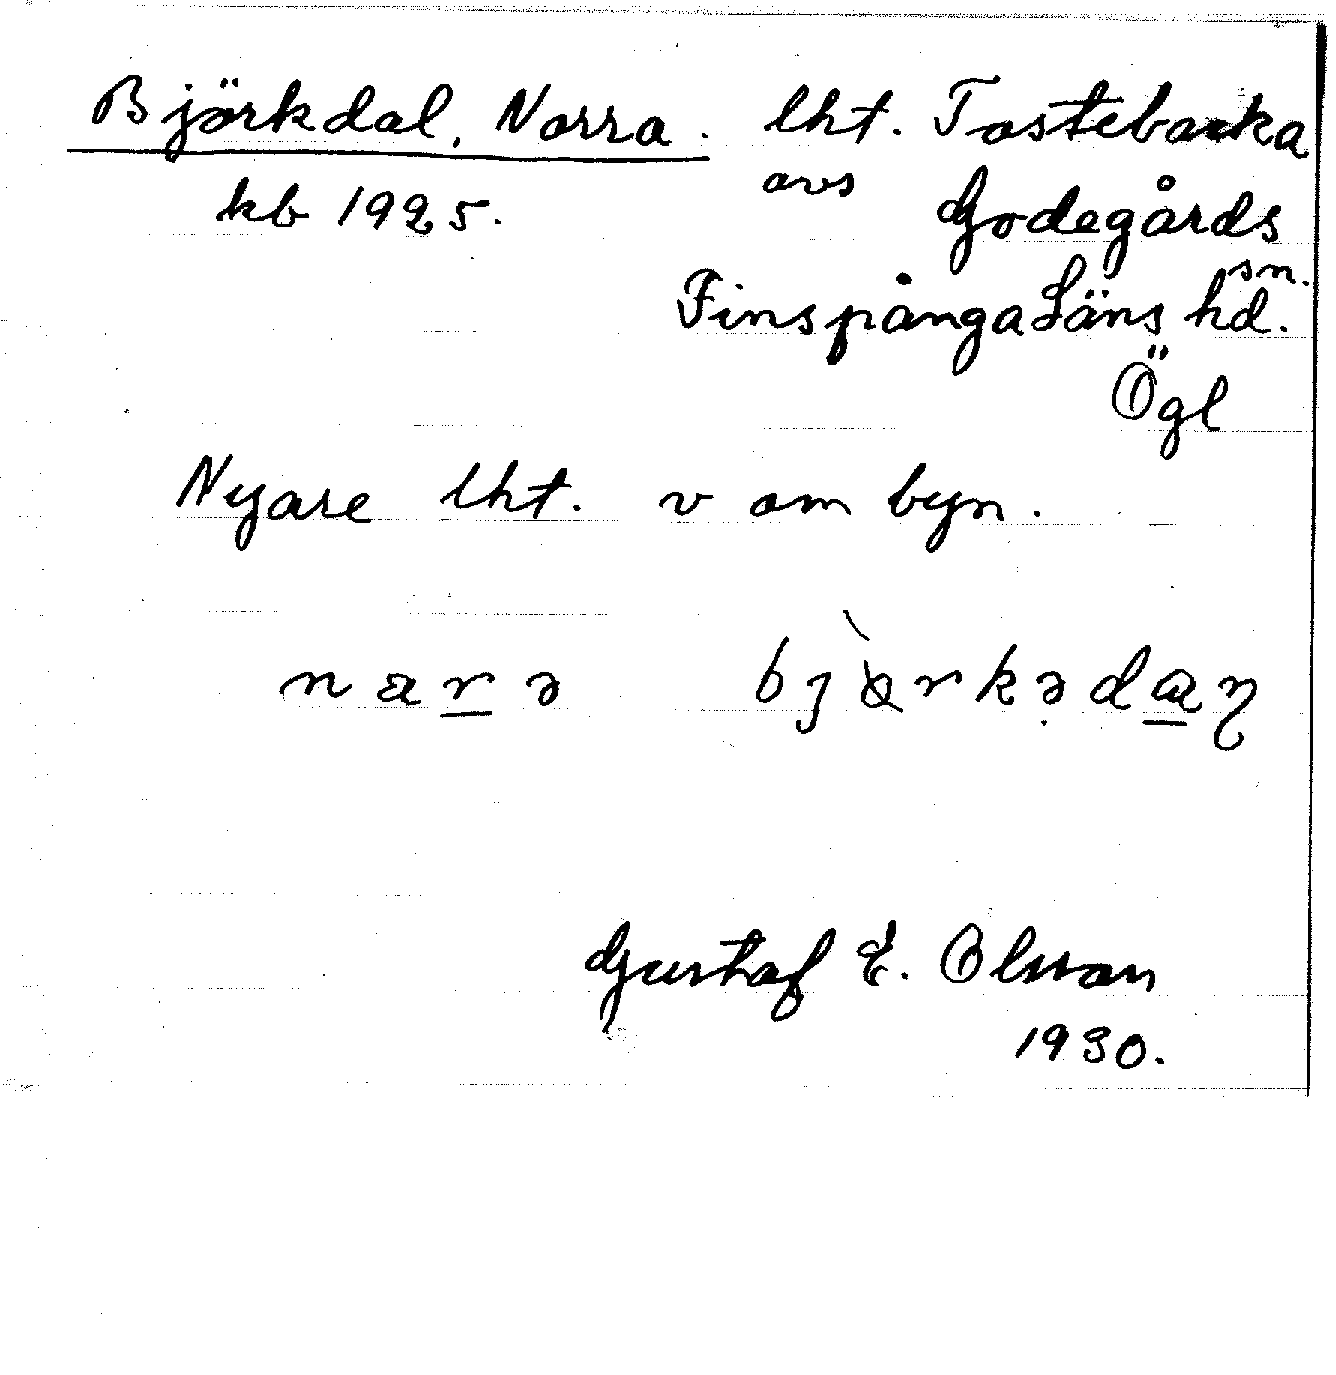 Björkdal, Norra. lht. Tostebacka
kb 1925. avs Godegårds
sn.
Finspånga Läns hd.
Ögl
Nyare lht. v om byn.
Gustaf E. Olsson
1930.